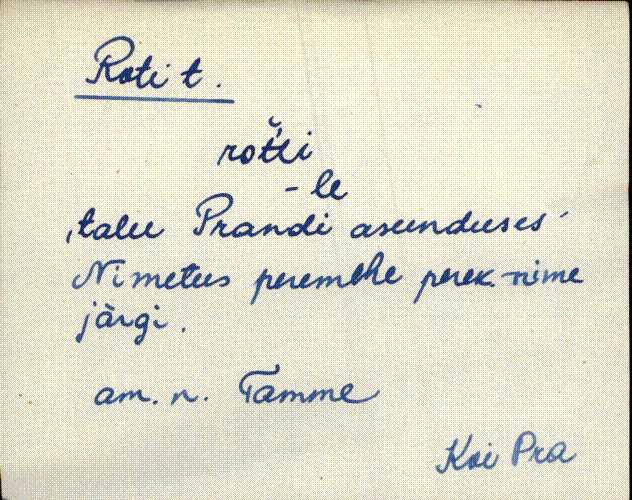 Roti t.
rot̆ti
-le
'talu Prandi asunduses'
Nimetus peremehe perek.-nime
järgi.
am. n. Tamme
Koi Pra